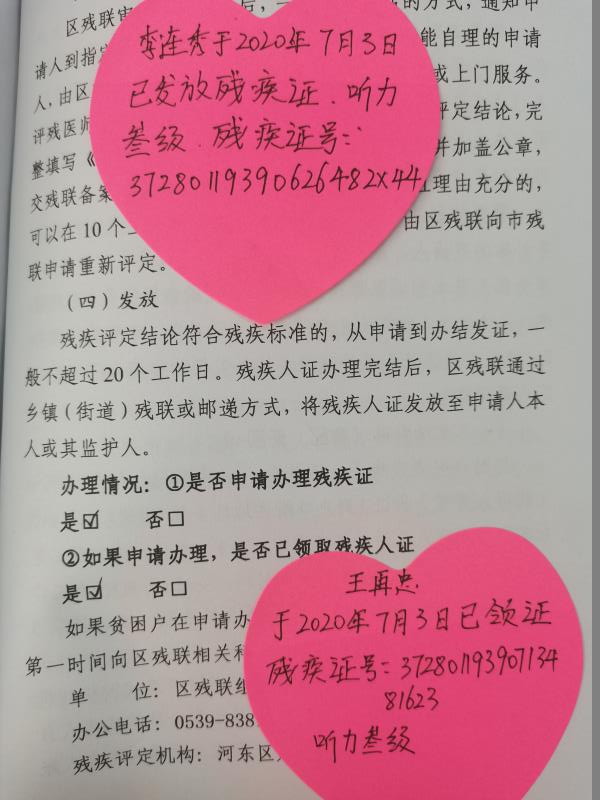 区残联审
李连秀于2020年7月3日
的方式，通知申
请人到指定
已发放残疾证．听力
能自理的申请
人，由区
或上门服务。
评残医师
叁级．残疾证号：
评定结论，完
整填写《
并加盖公章，
交残联备案
37280119390626482X44
理由充分的，
可以在10个工
由区残联向市残
联申请重新评定。
（四）发放
残疾评定结论符合残疾标准的，从申请到办结发证，一
般不超过20个工作日。残疾人证办理完结后，区残联通过
乡镇（街道）残联或邮递方式，将残疾人证发放至申请人本
人或其监护人。
办理情况：①是否申请办理残疾证
是☑ 否□
②如果申请办理，是否已领取残疾人证
是☑ 否□
王再忠
如果贫困户在申请办
于2020年7月3日已领证
第一时间向区残联相关科
残疾证号：372801193907134
81623
单 位：区残联组
办公电话：0539-838
听力叁级
残疾评定机构：河东区